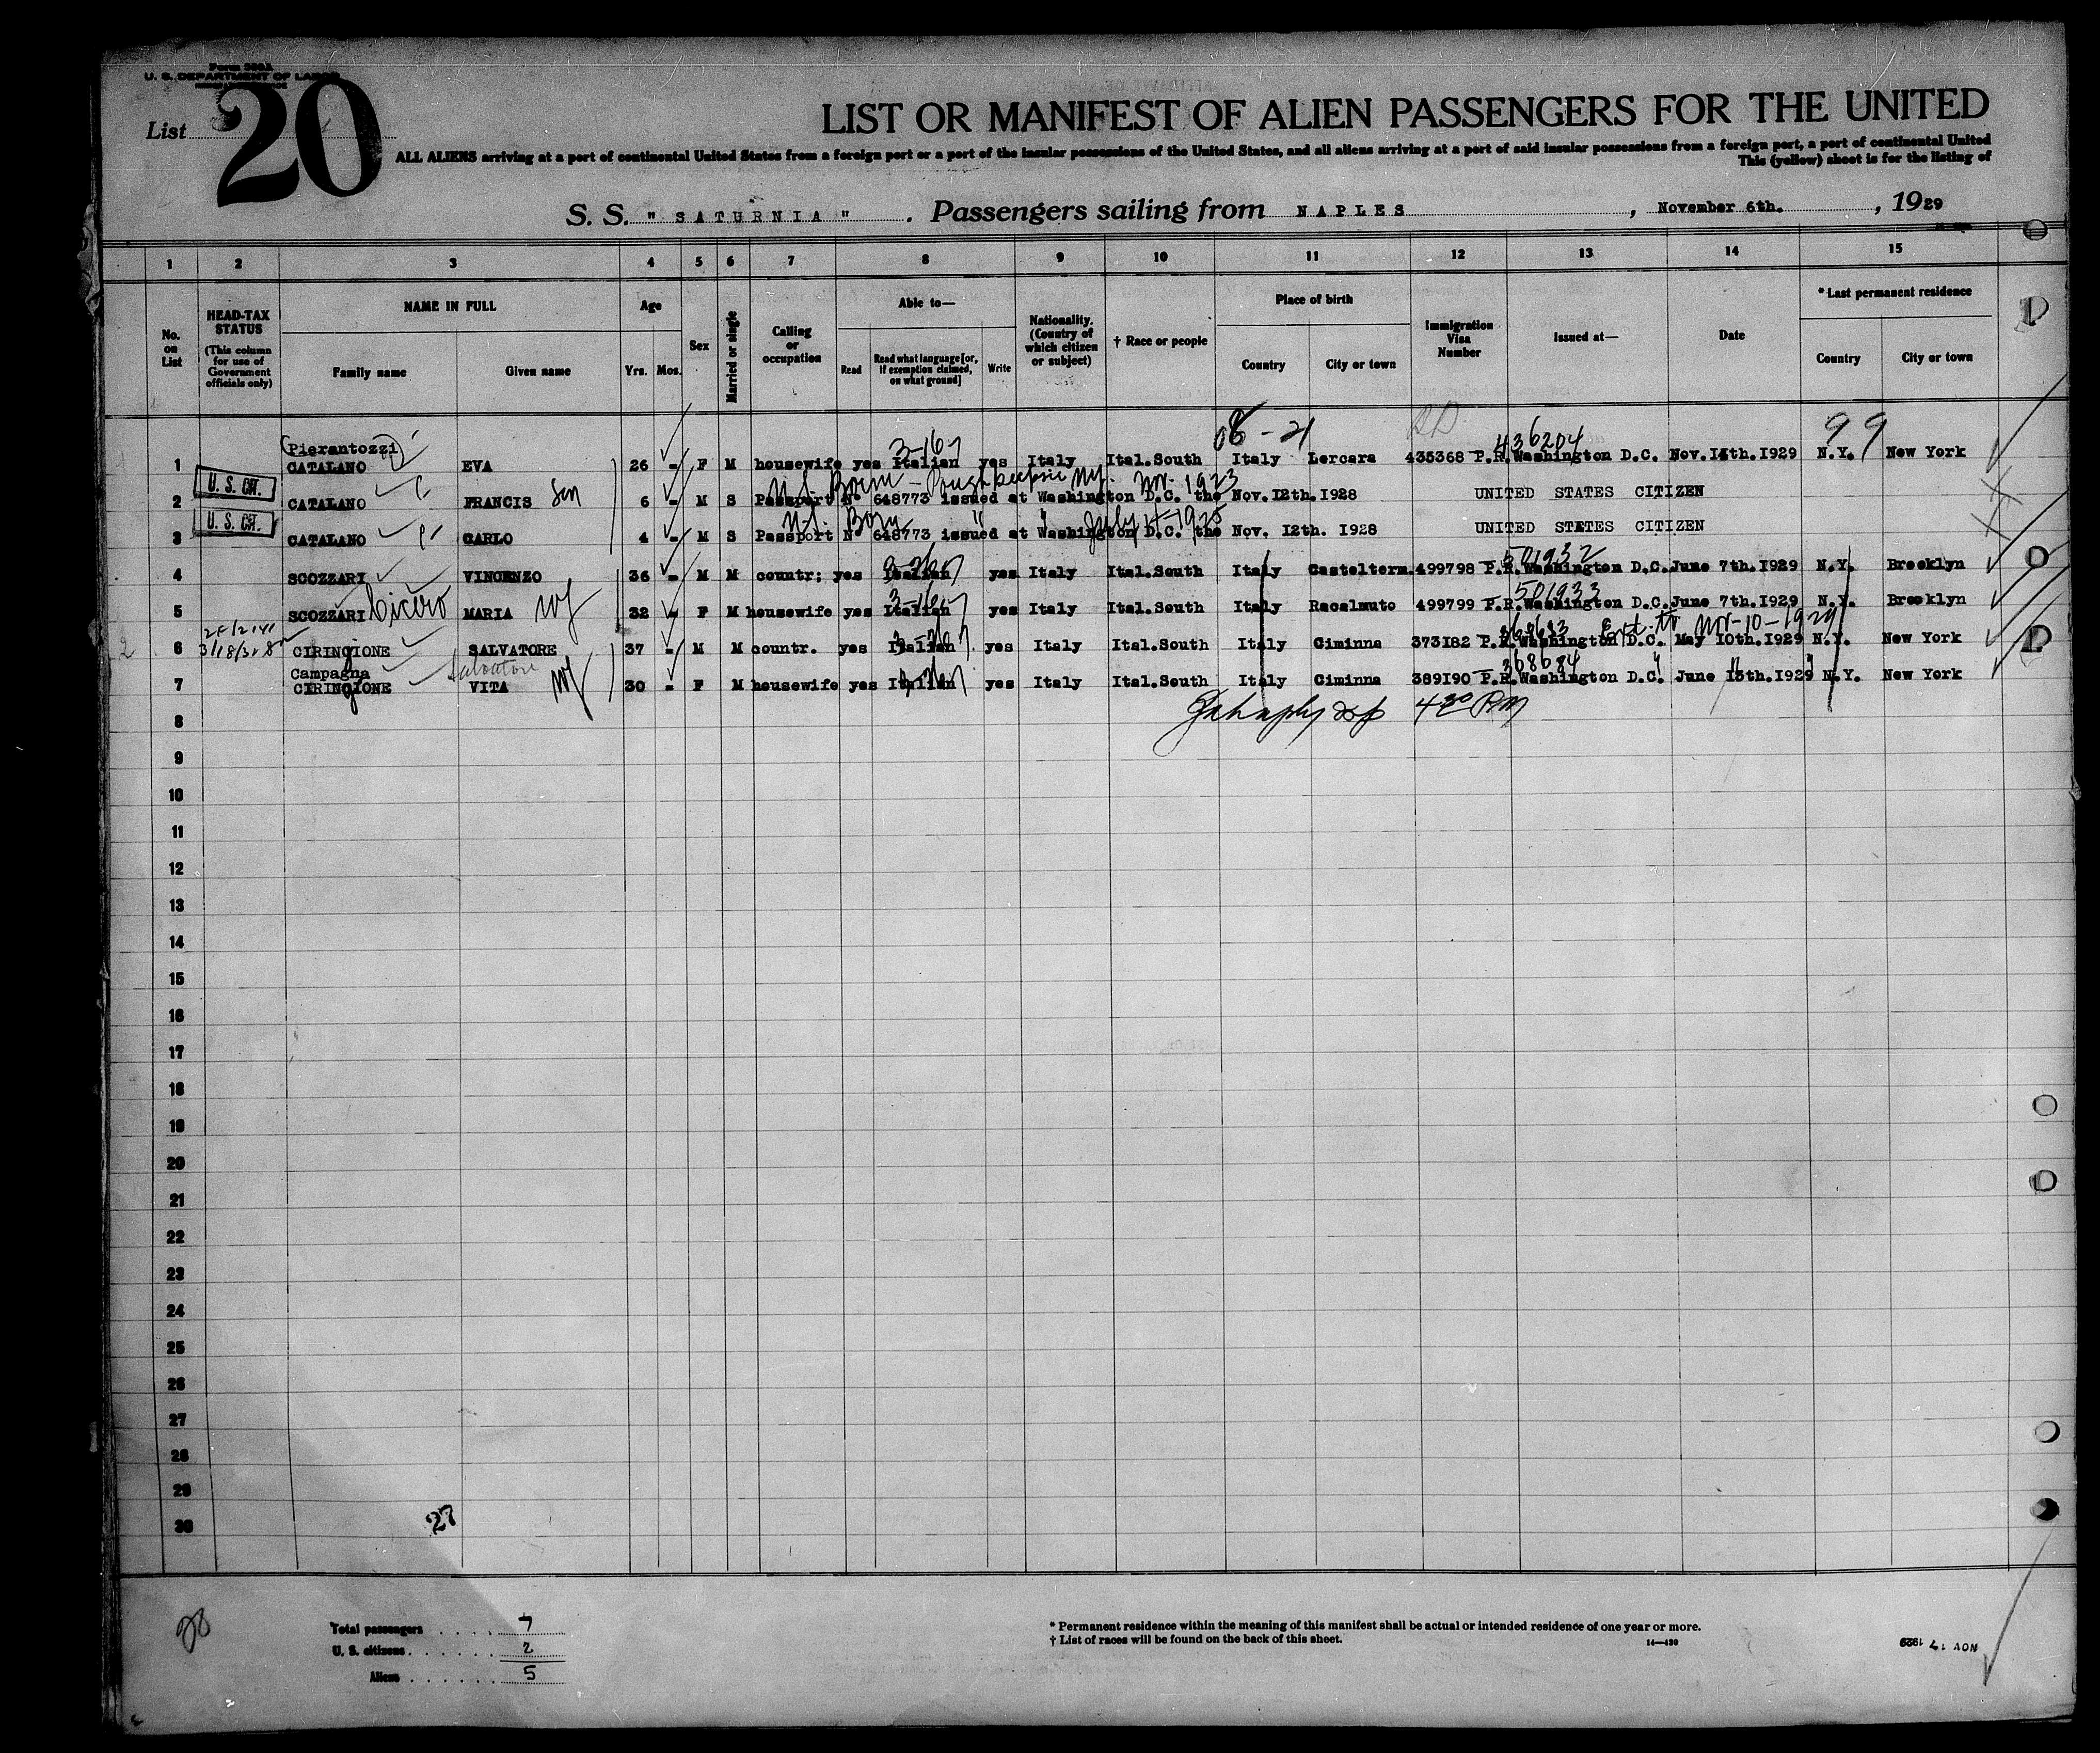 Form 500 A
U. S. DEPARTMENT OF LABOR
List 20
LIST OR MANIFEST OF ALIEN PASSENGERS FOR THE UNITED
ALL ALIENS arriving at a port of continental United States from a foreign port or a port of the insular possessions of the United States, and all aliens arriving at a port of said insular possessions from a foreign port, a port of continental United
This (yellow) sheet is for the listing of
S. S. " SATURNIA " . Passengers sailing from NAPLES , November 6th. , 1929
1 2 3 4 5 6 7 8 9 10 11 12 13 14 15
No. on List
HEAD-TAX STATUS (This column for use of Government officials only)
NAME IN FULL
Family name Given name
Age
Yrs. Mos.
Sex
Married or single
Calling or occupation
Able to—
Read Read what language [or, if exemption claimed, on what ground] Write
Nationality. (Country of which citizen or subject)
† Race or people
Place of birth
Country City or town
Immigration Visa Number
Issued at—
Date
* Last permanent residence
Country City or town
08-21 99
(Pierantozzi) 3-167 436204
1 CATALANO EVA 26 - F M housewife yes Italian yes Italy Ital.South Italy Lercara 435368 P.R.Washington D.C. Nov.14th.1929 N.Y. New York
U. S. CIT. U.S. Born - Poughkeepsie NY. Nov. 1923
2 CATALANO FRANCIS Son 6 - M S Passport N° 648773 issued at Washington D.C. the Nov.12th.1928 UNITED STATES CITIZEN
U. S. CIT. U.S. Born " " July 4-1925
3 CATALANO CARLO 4 - M S Passport N° 648773 issued at Washington D.C. the Nov. 12th. 1928 UNITED STATES CITIZEN
501932
4 SCOZZARI VINCENZO 36 - M M countr; yes Italian yes Italy Ital.South Italy Casteltern. 499798 P.R.Washington D.C. June 7th.1929 N.Y. Brooklyn
3-167 501933
5 SCOZZARI Cicero MARIA wf 32 - F M housewife yes Italian yes Italy Ital.South Italy Racalmuto 499799 P.R.Washington D.C. June 7th.1929 N.Y. Brooklyn
Ext. to Nov-10-1929
6 CIRINGIONE SALVATORE 37 - M M countr. yes Italian yes Italy Ital.South Italy Ciminna 373182 P.R.Washington D.C. May 10th.1929 N.Y. New York
Campagna Salvatore 368684 " " "
7 CIRINGIONE VITA wf 30 - F M housewife yes Italian yes Italy Ital.South Italy Ciminna 389190 P.R.Washington D.C. June 13th.1929 N.Y. New York
8 4 30 PM
9
10
11
12
13
14
15
16
17
18
19
20
21
22
23
24
25
26
27
28
29
30
27
Total passengers 7
U. S. citizens 2
Aliens 5
* Permanent residence within the meaning of this manifest shall be actual or intended residence of one year or more.
† List of races will be found on the back of this sheet.
14—430
NOV 17 1929